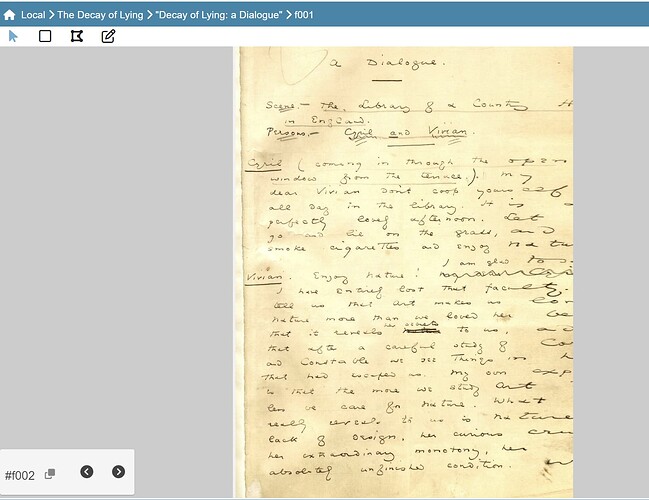 Local The Decay of Lying "Decay of Lying: a Dialogue" f001
a Dialogue.
Scene:- The Library of a Country H
in England.
Persons:- Cyril and Vivian.
Cyril ( coming in through the open
window from the terrace.). My
dear Vivian don't coop yourself
all day in the library. It is a
perfectly lovely afternoon. Let
go and lie on the grass, and
smoke cigarettes and enjoy Natu
I am glad to
Vivian. Enjoy Nature!
I have entirely lost that faculty.
tell us that Art makes us lov
Nature more than we loved her be
that it reveals her secrets to us, and
that after a careful study of Co
and Constable we see things in h
that had escaped us. My own exp
is that the more we study Art
less we care for Nature. What
really reveals to us is Nature
lack of design, her curious cru
her extraordinary monotony, her
absolutely unfinished condition.
#f002